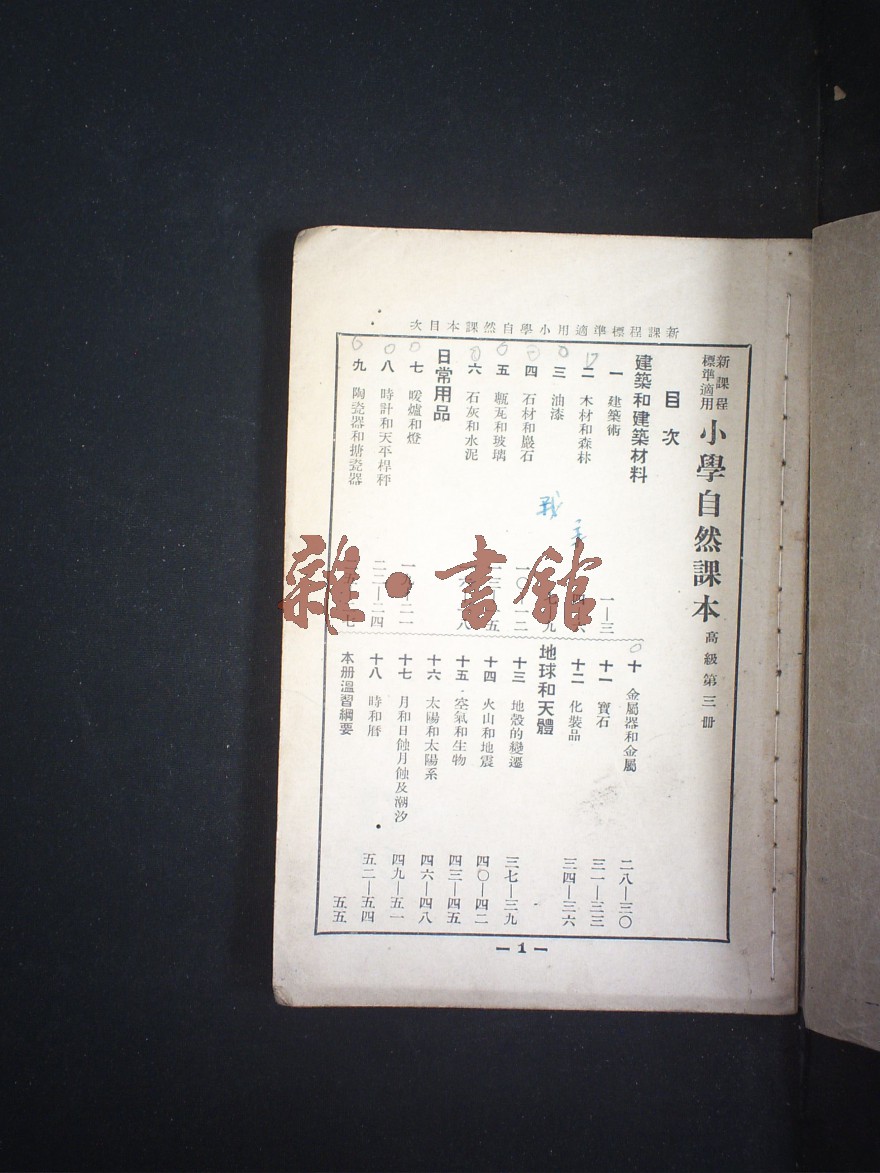 新課程標準適用小學自然課本目次
新課程標準適用
小學自然課本 高級第三冊
目次
建築和建築材料
一 建築術 一—三
二 木材和森林 四—六
三 油漆 七—九
四 石材和巖石 一〇—一二
五 甎瓦和玻璃 一三—一五
六 石灰和水泥 一八
日常用品
七 暖爐和燈 二一
八 時計和天平桿秤 二二—二四
九 陶瓷器和搪瓷器 七
十 金屬器和金屬 二八—三〇
十一 寶石 三一—三三
十二 化裝品 三四—三六
地球和天體
十三 地殼的變遷 三七—三九
十四 火山和地震 四〇—四二
十五 空氣和生物 四三—四五
十六 太陽和太陽系 四六—四八
十七 月和日蝕月蝕及潮汐 四九—五一
十八 時和曆 五二—五四
本册溫習綱要 五五
— 1 —
雜·書館